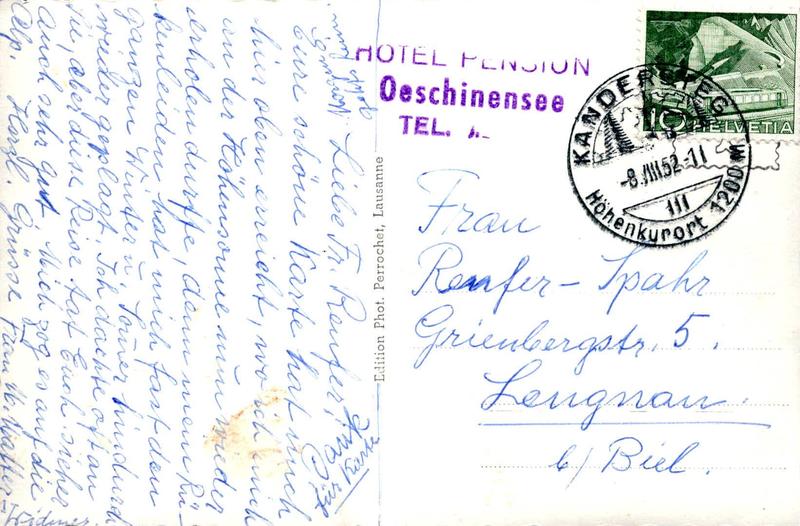 HOTEL PENSION
Oeschinensee
TEL.
KANDERSTEG
-8.VIII.52.-11
III
Höhenkurort 1200 m
10 HELVETIA
Edition Phot. Perrochet, Lausanne
Frau
Renfer-Spahr
Grienbergstr. 5.
Lengnau
b/ Biel.
Liebe Fr. Renfer,
Eure schöne Karte hat mich
hier oben erreicht, wo ich mich
an der Höhensonne nun wieder
erholen durfte, denn mein Rü-
kenleiden hat mich fast den
ganzen Winter u. Somer hindurch
wieder geplagt. Ich dachte oft an
Sie, aber diese Reise tat Euch sicher
auch sehr gut. Mich zog es auf die
Alp. Herzl. Grüsse Fam.
Widmer.